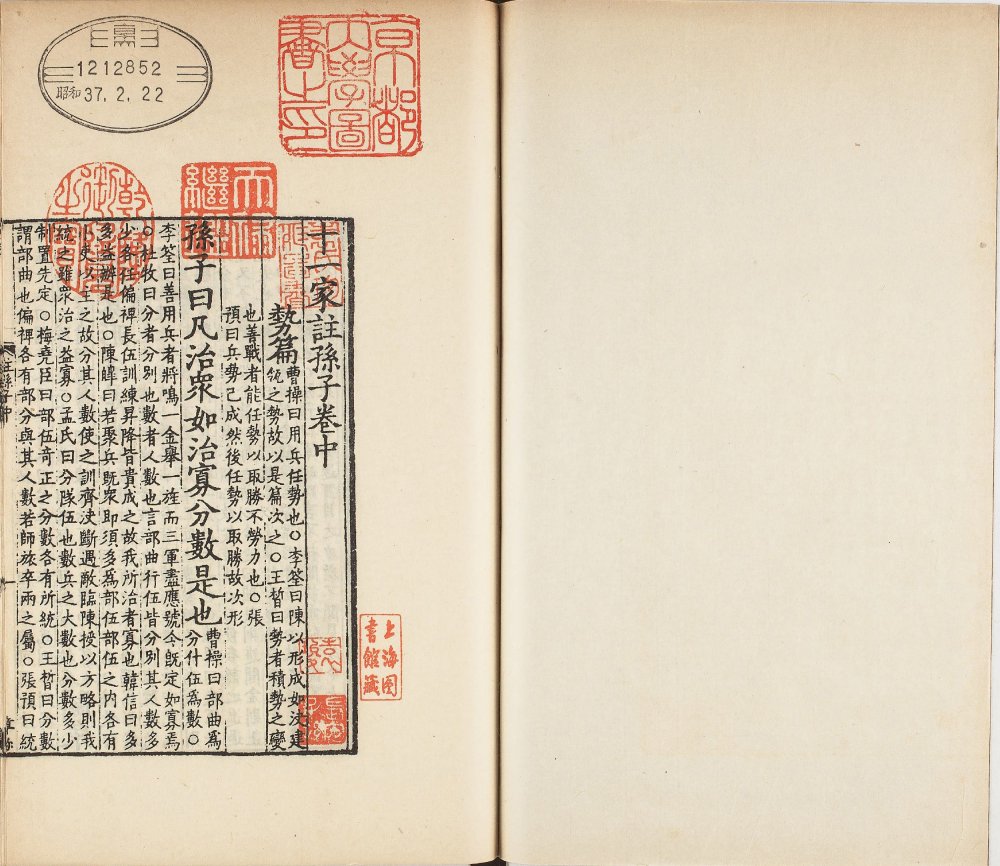 1212852
昭和37.2.22
京都
大學圖
書之印
天祿
繼鑑
乾隆
御覽
之寶
十一家註孫子卷中
勢篇曹操曰用兵任勢也○李筌曰陳以形成如決建
瓴之勢故以是篇次之○王晳曰勢者積勢之變
也善戰者能任勢以取勝不勞力也○張
預曰兵勢已成然後任勢以取勝故次形
孫子曰凡治衆如治寡分數是也曹操曰部曲爲
分什伍爲數○
李筌曰善用兵者將鳴一金舉一旌而三軍盡應號令旣定如寡焉
○杜牧曰分者分別也數者人數也言部曲行伍皆分別其人數多
少各任偏裨長伍訓練昇降皆責成之故我所治者寡也韓信曰多
多益辦是也○陳皥曰若聚兵旣衆即須多爲部伍部伍之内各有
小吏以主之故分其人數使之訓齊決斷遇敵臨陳授以方略則我
統之雖衆治之益寡○孟氏曰分隊伍也數兵之大數也分數多少
制置先定○梅堯臣曰部伍奇正之分數各有所統○王晳曰分數
謂部曲也偏裨各有部分與其人數若師旅卒兩之屬○張預曰統
註孫子中
上海图
書館藏